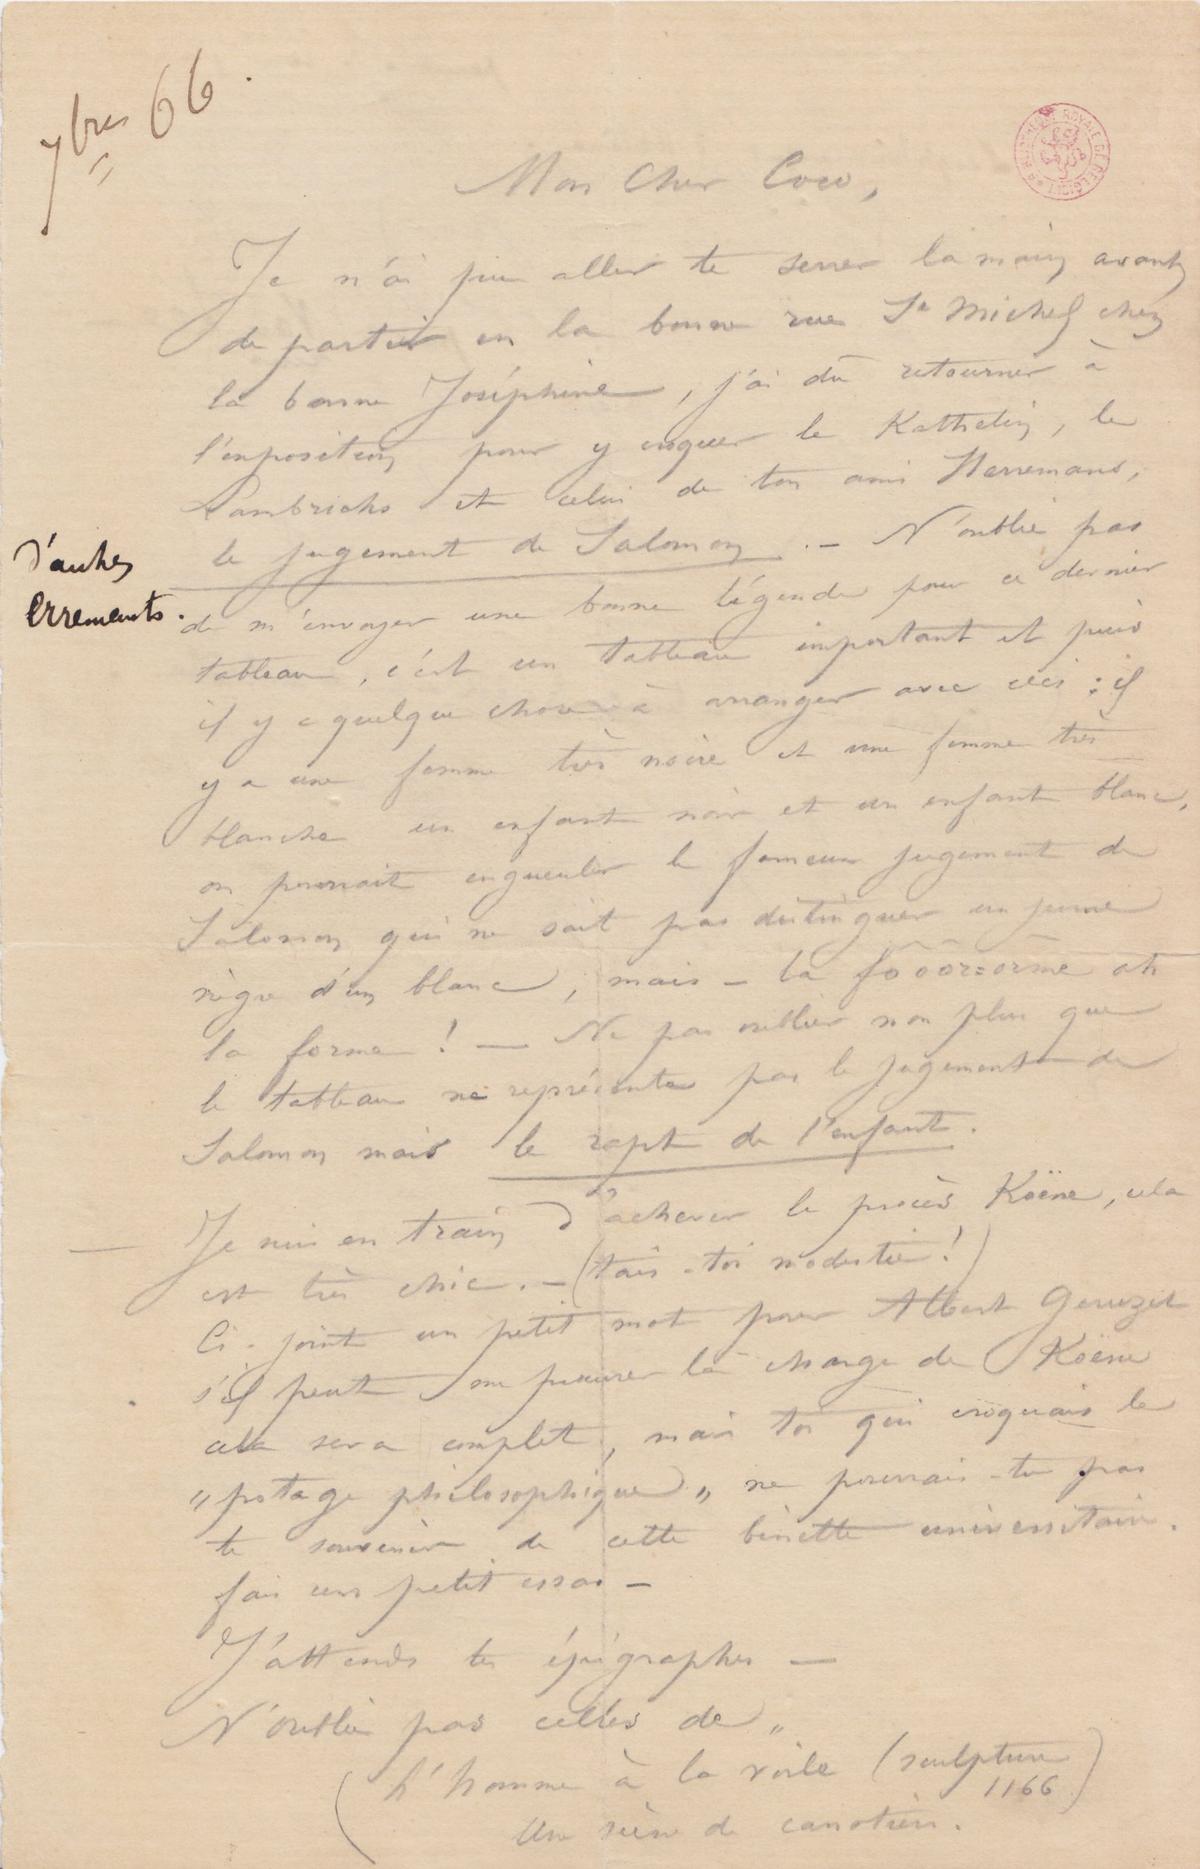 7bres 66.
BIBLIOTHEQUE ROYALE DE BELGIQUE
Mon Cher Coco,
Je n'ai pu aller te serrer la main avant
de partir en la bonne rue St Michel chez
la bonne Joséphine, j'ai dû retourner à
l'exposition pour y croquer le Kathelin, le
Lambrichs et celui de ton ami Herremans,
le jugement de Salomon. — N'oublie pas
d'autres
errements.
de m'envoyer une bonne légende pour ce dernier
tableau, c'est un tableau important et puis
il y a quelque chose à arranger avec ceci : il
y a une femme très noire et une femme très
blanche un enfant noir et un enfant blanc,
on pourrait engueuler le fameux jugement de
Salomon qui ne sait pas distinguer un jeune
nègre d'un blanc, mais — la fôôôr=orme oh
la forme ! — Ne pas oublier non plus que
le tableau ne représente pas le jugement de
Salomon mais le rapt de l'enfant.
— Je suis en train d'achever le procès Koëne, cela
est très chic. — (tais-toi modestie !)
Ci-joint un petit mot pour Albert Geruzet
s'il peut me procurer la charge de Koëne
cela sera complet, mais toi qui croquais le
„potage philosophique„ ne pourrais-tu pas
te souvenir de cette binette universitaire.
fais un petit essai —
J'attends tes épigraphes —
N'oublie pas celles de „
(L'homme à la voile (sculpture
1166)
Un rien de canotier.